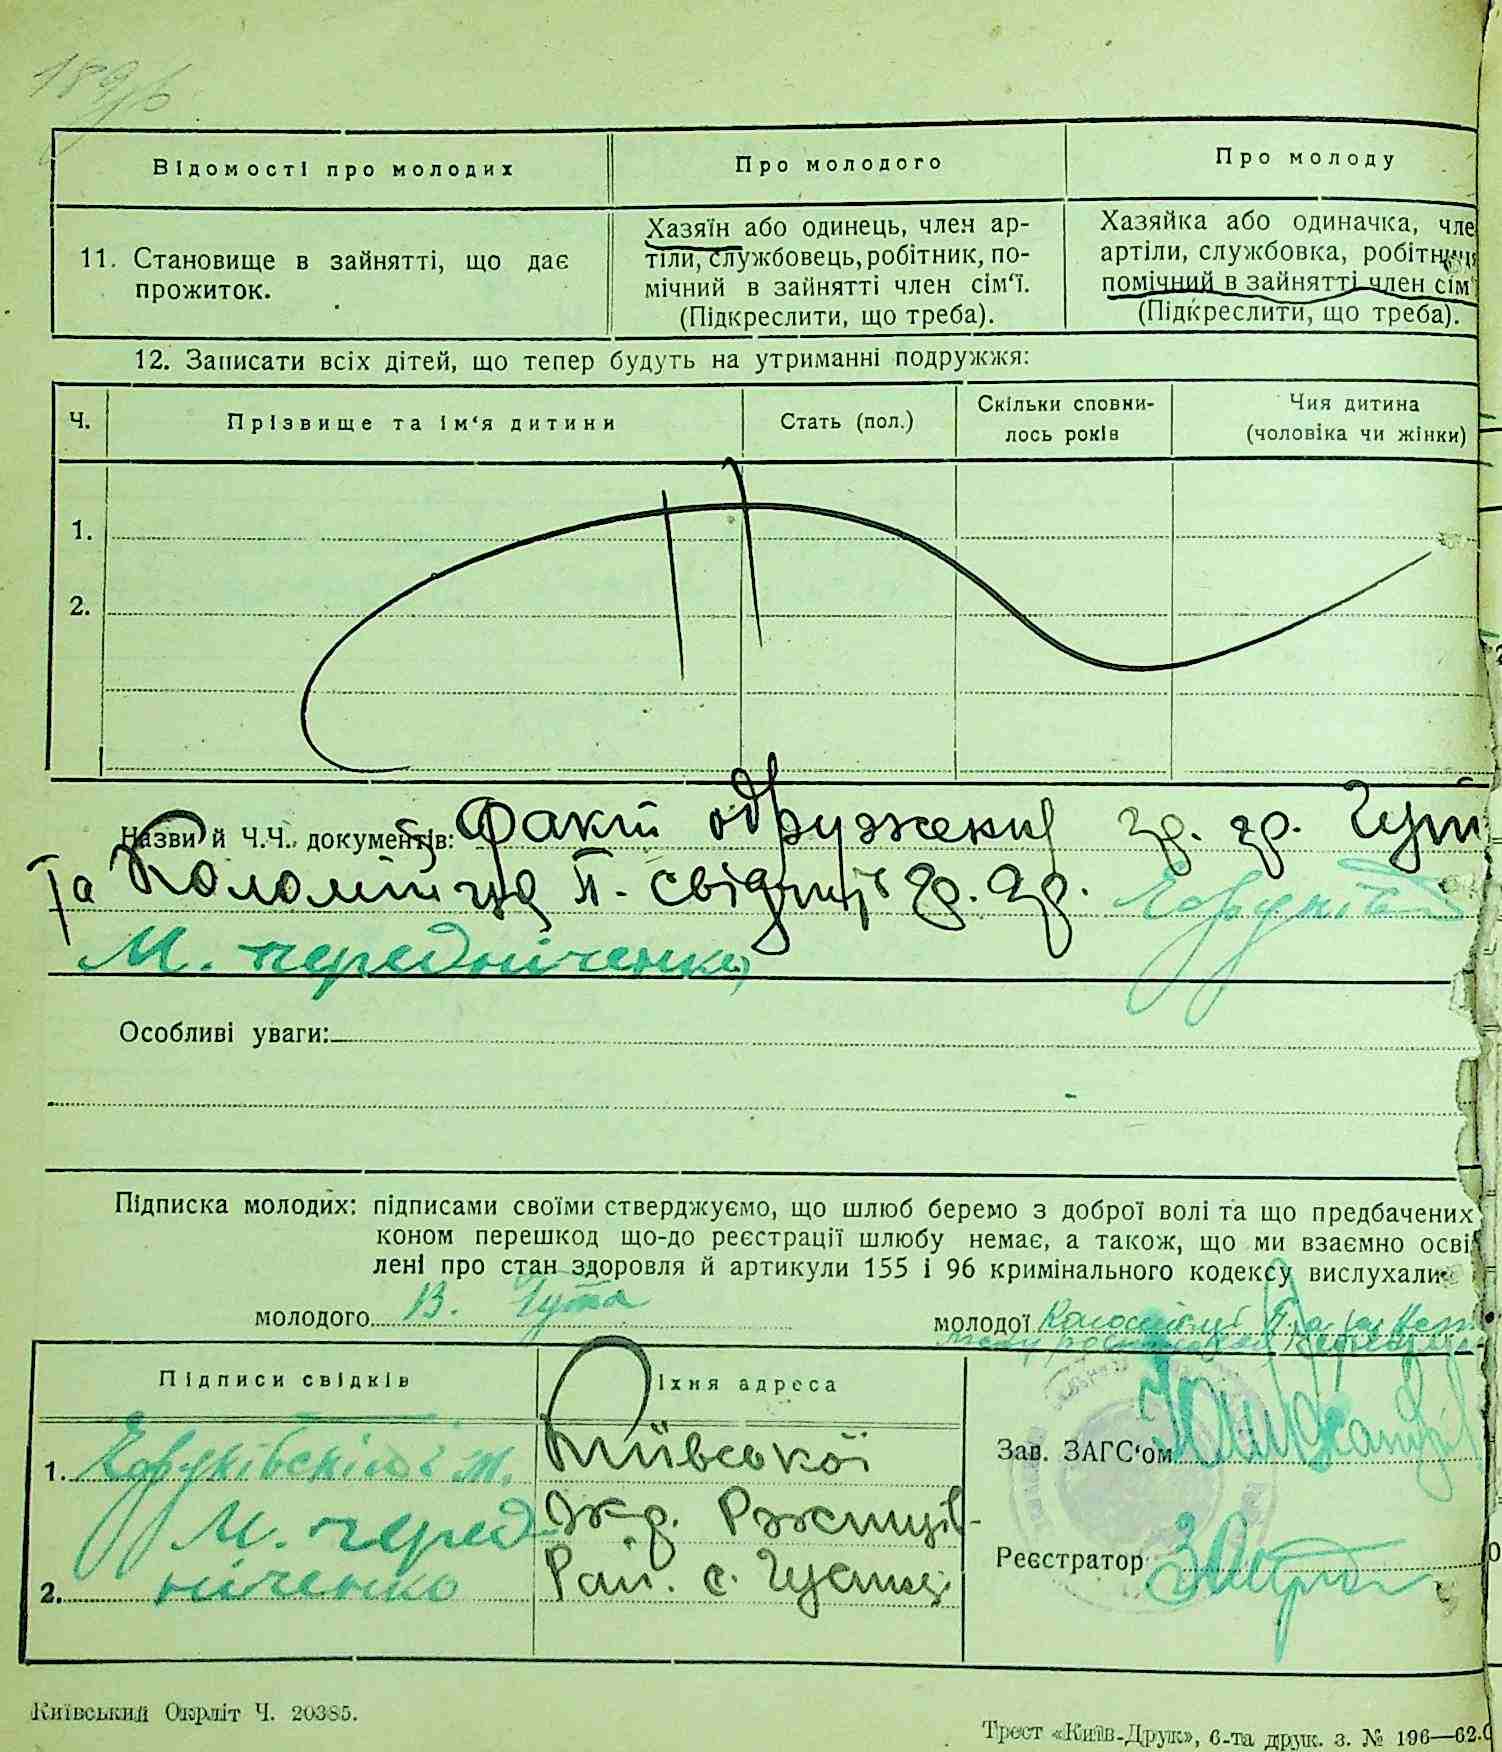 Відомості про молодих
Про молодого
Про молоду
11. Становище в зайнятті, що дає
прожиток.
Хазяїн або одинець, член ар-
тіли, службовець, робітник, по-
мічний в зайнятті член сім'ї.
(Підкреслити, що треба).
Хазяйка або одиначка, чле
артіли, службовка, робітниця
помічний в зайнятті член сім'
(Підкреслити, що треба).
12. Записати всіх дітей, що тепер будуть на утриманні подружжя:
Ч.
Прізвище та ім'я дитини
Стать (пол.)
Скільки сповни-
лось років
Чия дитина
(чоловіка чи жінки)
1.
2.
Назви й Ч.Ч. документів: Факт одруження гр. гр.
Та Коломійця П. свідчить гр. гр.
М. Чередніченко
Особливі уваги:
Підписка молодих: підписами своїми стверджуємо, що шлюб беремо з доброї волі та що предбачених
коном перешкод що-до реєстрації шлюбу немає, а також, що ми взаємно осві
лені про стан здоровля й артикули 155 і 96 кримінального кодексу вислухали
молодого В. Гута
молодої
Підписи свідків
Їхня адреса
1.
М. Черед
2. ніченко
Київської
Окр. Ржищів-
Рай. с.
Зав. ЗАГС'ом
Реєстратор
Київський Окрліт Ч. 20385.
Трест «Київ-Друк», 6-та друк. з. № 196—62.